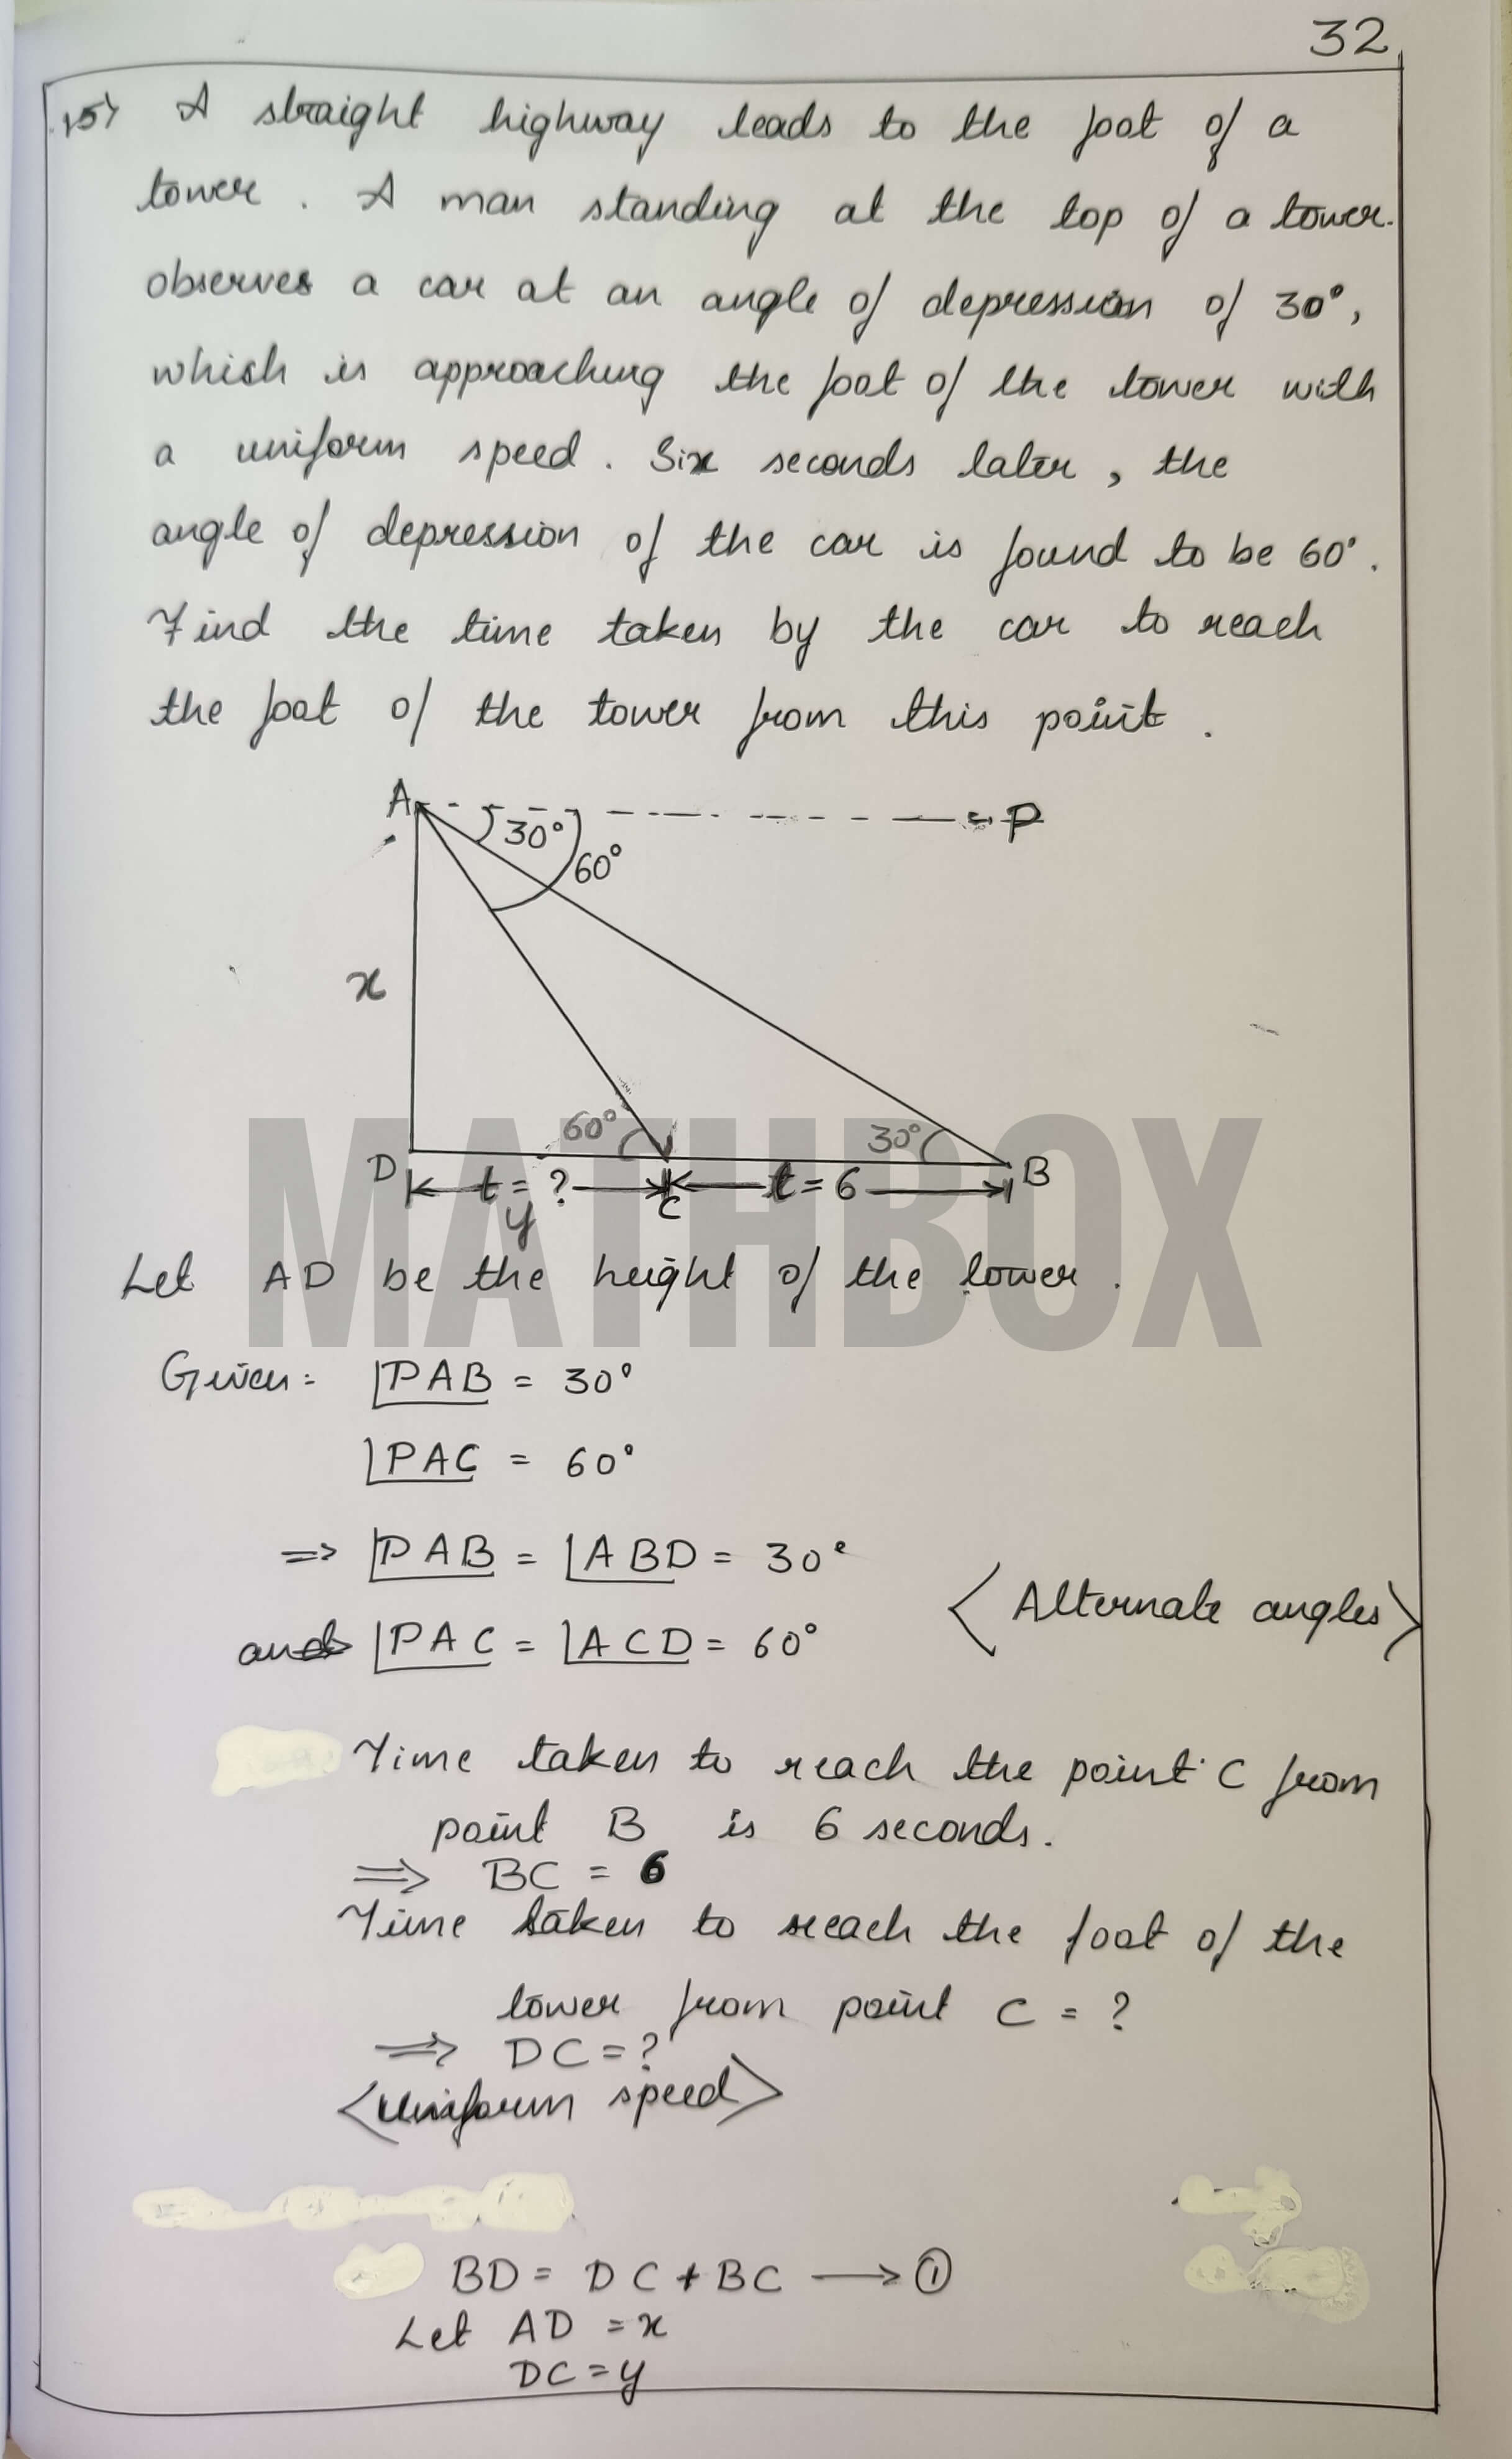 32
15) A straight highway leads to the foot of a
tower. A man standing at the top of a tower
observes a car at an angle of depression of 30°,
which is approaching the foot of the tower with
a uniform speed. Six seconds later, the
angle of depression of the car is found to be 60°.
Find the time taken by the car to reach
the foot of the tower from this point.
A P
30°
60°
x
60° 30°
D B
t = ? C t = 6
y
MATHBOX
Let AD be the height of the tower.
Given: ∠PAB = 30°
∠PAC = 60°
=> ∠PAB = ∠ABD = 30°
and ∠PAC = ∠ACD = 60°
< Alternate angles >
Time taken to reach the point C from
point B is 6 seconds.
=> BC = 6
Time taken to reach the foot of the
tower from point C = ?
=> DC = ?
< Uniform speed >
BD = DC + BC → ①
Let AD = x
DC = y